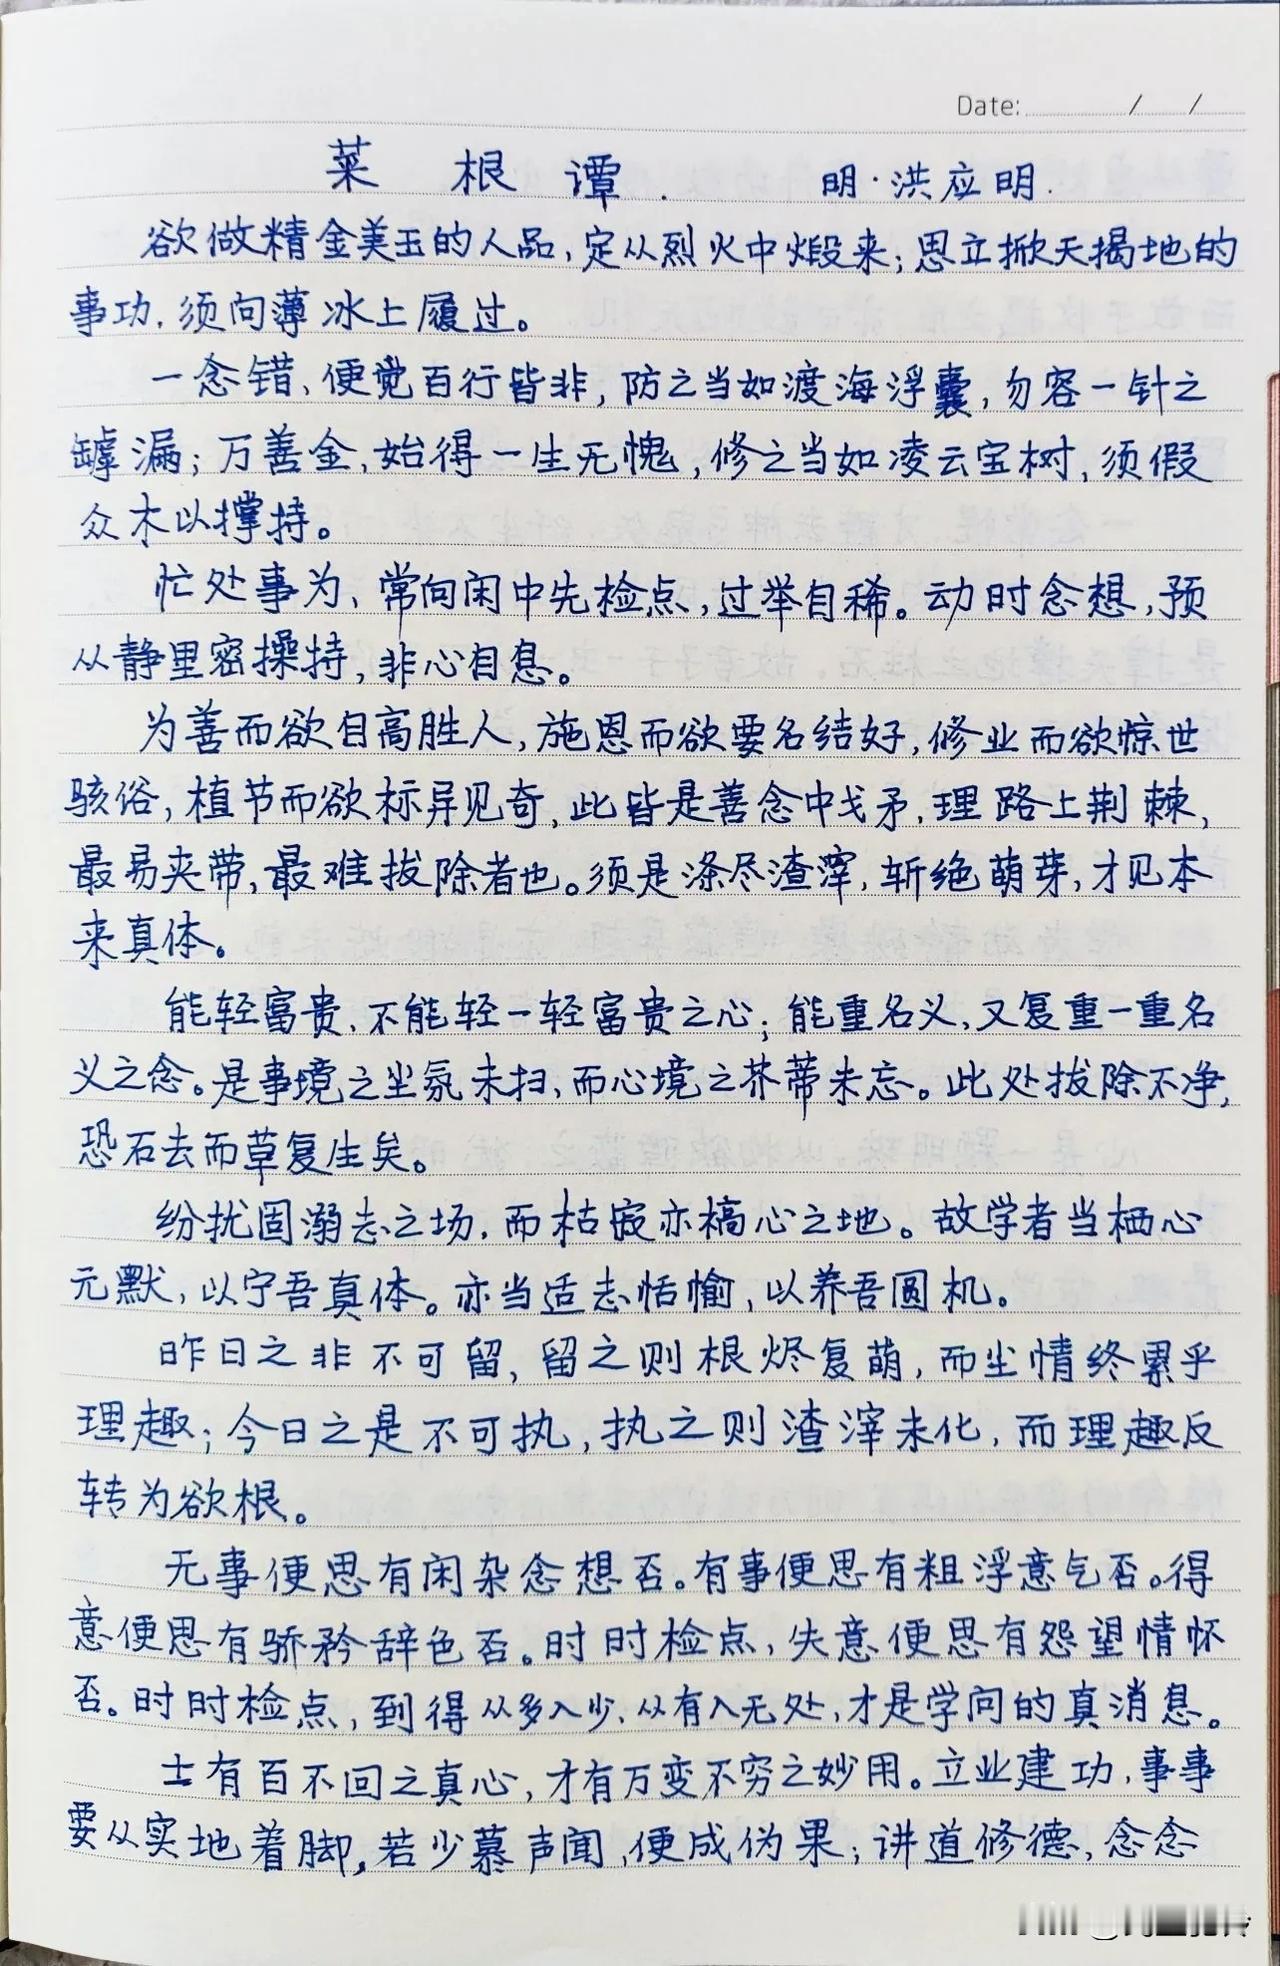 Date: / /
菜根谭. 明·洪应明.
欲做精金美玉的人品,定从烈火中煅来;思立掀天揭地的
事功,须向薄冰上履过。
一念错,便觉百行皆非,防之当如渡海浮囊,勿容一针之
罅漏;万善金,始得一生无愧,修之当如凌云宝树,须假
众木以撑持。
忙处事为,常向闲中先检点,过举自稀。动时念想,预
从静里密操持,非心自息。
为善而欲自高胜人,施恩而欲要名结好,修业而欲惊世
骇俗,植节而欲标异见奇,此皆是善念中戈矛,理路上荆棘,
最易夹带,最难拔除者也。须是涤尽渣滓,斩绝萌芽,才见本
来真体。
能轻富贵,不能轻一轻富贵之心;能重名义,又复重一重名
义之念。是事境之尘氛未扫,而心境之芥蒂未忘。此处拔除不净,
恐石去而草复生矣。
纷扰固溺志之场,而枯寂亦槁心之地。故学者当栖心
元默,以宁吾真体。亦当适志恬愉,以养吾圆机。
昨日之非不可留,留之则根烬复萌,而尘情终累乎
理趣;今日之是不可执,执之则渣滓未化,而理趣反
转为欲根。
无事便思有闲杂念想否。有事便思有粗浮意气否。得
意便思有骄矜辞色否。时时检点,失意便思有怨望情怀
否。时时检点,到得从多入少、从有入无处,才是学问的真消息。
士有百不回之真心,才有万变不穷之妙用。立业建功,事事
要从实地着脚,若少慕声闻,便成伪果;讲道修德,念念